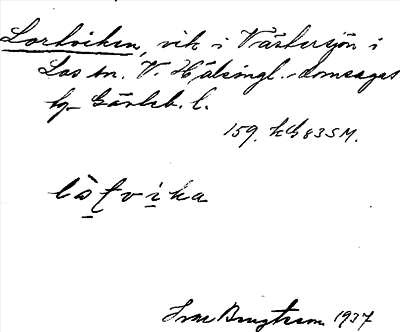 Lortviken, vik i Västersjön i
Los sn. V. Hälsingl. domsagas
tg. Gävleb. l.
159. kb 83 SM.
lòṣṭvi̱ka
Ivar Bengtsson 1937